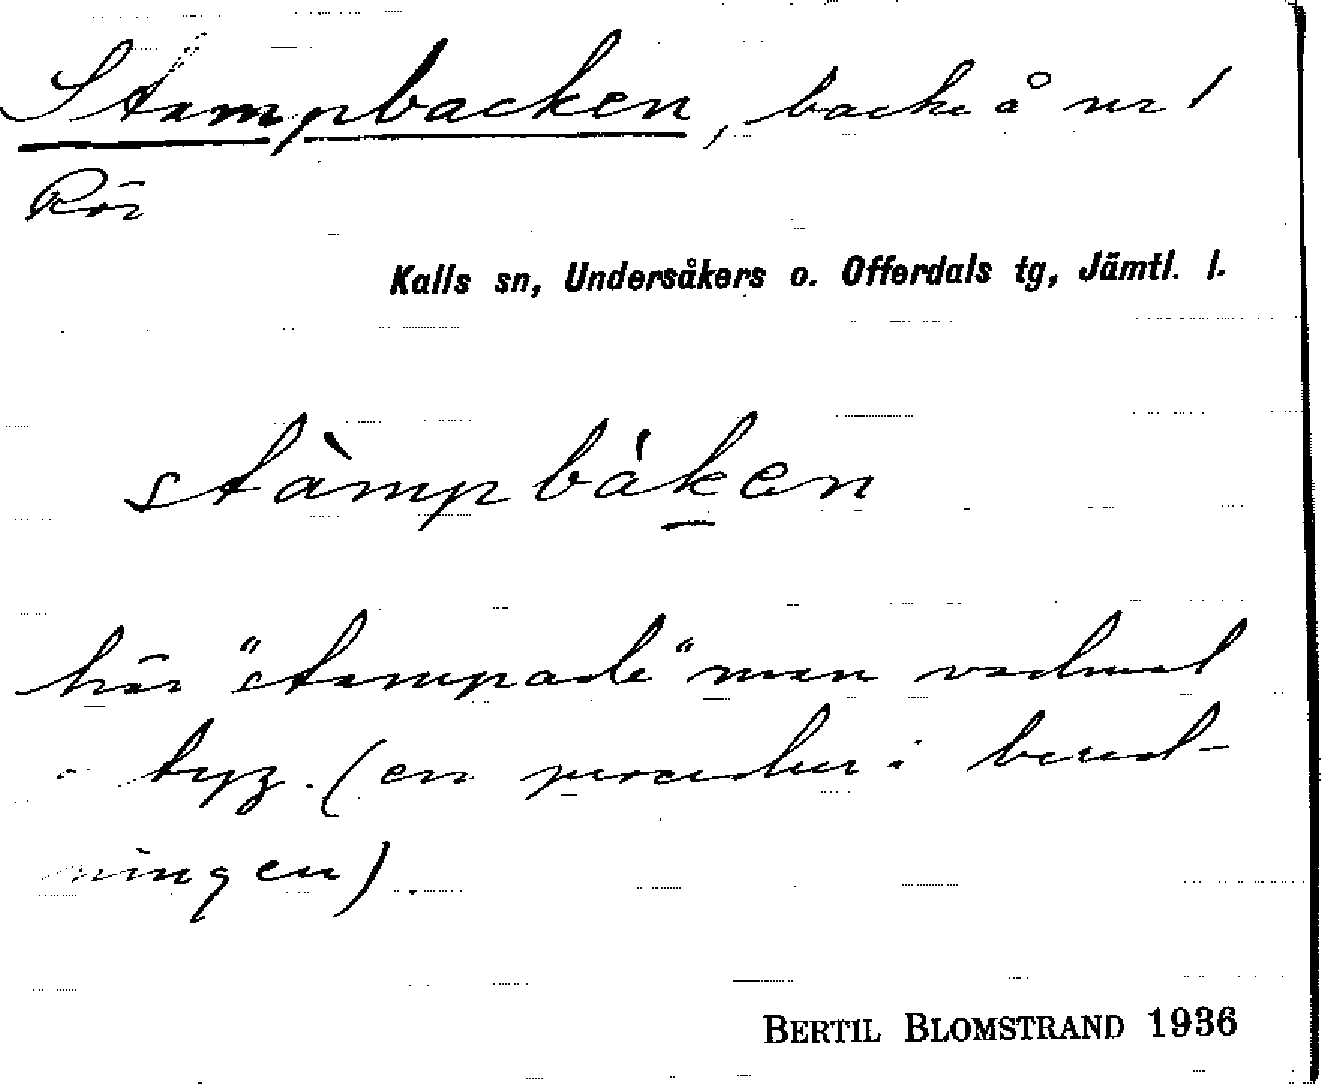 Stampbacken, backe å nr 1
Rör
Kalls sn, Undersåkers o. Offerdals tg, Jämtl. l.
stàmpbáken
här "stampade" man vadmal
o tyg. (en procedur i bered-
ningen).
BERTIL BLOMSTRAND 1936